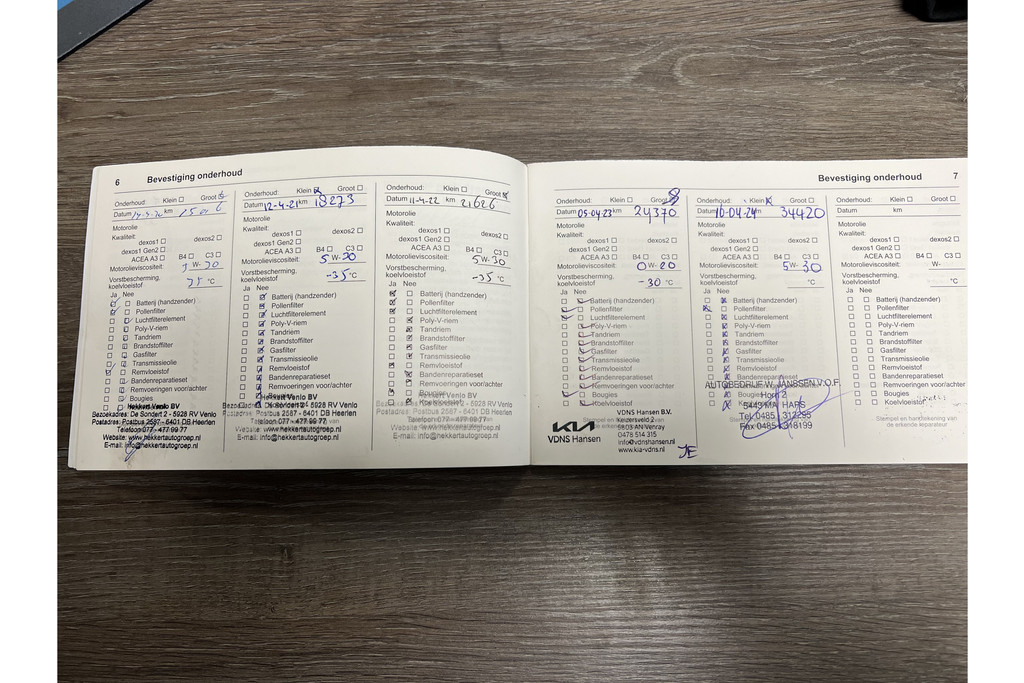 6 Bevestiging onderhoud
Onderhoud: Klein Groot
Datum 14-4-20 km
Motorolie
Kwaliteit:
dexos1 dexos2
dexos1 Gen2
ACEA A3 B4 C3
Motorolieviscositeit: W-30
Vorstbescherming,
koelvloeistof °C
Ja Nee
Batterij (handzender)
Pollenfilter
Luchtfilterelement
Poly-V-riem
Tandriem
Brandstoffilter
Gasfilter
Transmissieolie
Remvloeistof
Bandenreparatieset
Remvoeringen voor/achter
Bougies
Hekkert Venlo BV
Bezoekadres: De Sondert 2 - 5928 RV Venlo
Postadres: Postbus 2587 - 6401 DB Heerlen
Telefoon 077 - 477 99 77
Website: www.hekkertautogroep.nl
E-mail: info@hekkertautogroep.nl
Onderhoud: Klein Groot
Datum 12-4-21 km 18273
Motorolie
Kwaliteit:
dexos1 dexos2
dexos1 Gen2
ACEA A3 B4 C3
Motorolieviscositeit: 5 W-30
Vorstbescherming,
koelvloeistof -35 °C
Ja Nee
Batterij (handzender)
Pollenfilter
Luchtfilterelement
Poly-V-riem
Tandriem
Brandstoffilter
Gasfilter
Transmissieolie
Remvloeistof
Bandenreparatieset
Remvoeringen voor/achter
Hekkert Venlo BV
De Sondert 2 - 5928 RV Venlo
Postbus 2587 - 6401 DB Heerlen
Telefoon 077 - 477 99 77
Website: www.hekkertautogroep.nl
E-mail: info@hekkertautogroep.nl
Onderhoud: Klein Groot
Datum 11-4-22 km 21626
Motorolie
Kwaliteit:
dexos1 dexos2
dexos1 Gen2
ACEA A3 B4 C3
Motorolieviscositeit: 5 W-30
Vorstbescherming,
koelvloeistof -35 °C
Ja Nee
Batterij (handzender)
Pollenfilter
Luchtfilterelement
Poly-V-riem
Tandriem
Brandstoffilter
Gasfilter
Transmissieolie
Remvloeistof
Bandenreparatieset
Remvoeringen voor/achter
Bougies
2587 - 6401 DB Heerlen
077 - 477 99 77
Website: www.hekkertautogroep.nl
E-mail: info@hekkertautogroep.nl
Bevestiging onderhoud 7
Onderhoud: Klein Groot
Datum 05-04-23 km 24370
Motorolie
Kwaliteit:
dexos1 dexos2
dexos1 Gen2
ACEA A3 B4 C3
Motorolieviscositeit: 0 W-20
Vorstbescherming,
koelvloeistof -30 °C
Ja Nee
Batterij (handzender)
Pollenfilter
Luchtfilterelement
Poly-V-riem
Tandriem
Brandstoffilter
Gasfilter
Transmissieolie
Remvloeistof
Bandenreparatieset
Remvoeringen voor/achter
Bougies
Koelvloeistof
KIA
VDNS Hansen
VDNS Hansen B.V.
Keizersveld 2
5803 AN Venray
0478 514 315
info@vdnshansen.nl
www.kia-vdns.nl
JE
Onderhoud: Klein Groot
Datum 10-04-24 km 34420
Motorolie
Kwaliteit:
dexos1 dexos2
dexos1 Gen2
ACEA A3 B4 C3
Motorolieviscositeit: 5 W-30
Vorstbescherming,
koelvloeistof °C
Ja Nee
Batterij (handzender)
Pollenfilter
Luchtfilterelement
Poly-V-riem
Tandriem
Brandstoffilter
Gasfilter
Transmissieolie
Remvloeistof
Bandenreparatieset
AUTOBEDRIJF W. JANSSEN V.O.F.
Hoek 2
5443 MA HAPS
Tel 0485 - 312255
Fax 0485 - 318199
Onderhoud: Klein Groot
Datum km
Motorolie
Kwaliteit:
dexos1 dexos2
dexos1 Gen2
ACEA A3 B4 C3
Motorolieviscositeit: W-
Vorstbescherming,
koelvloeistof °C
Ja Nee
Batterij (handzender)
Pollenfilter
Luchtfilterelement
Poly-V-riem
Tandriem
Brandstoffilter
Gasfilter
Transmissieolie
Remvloeistof
Bandenreparatieset
Remvoeringen voor/achter
Bougies
Koelvloeistof
Stempel en handtekening van
de erkende reparateur